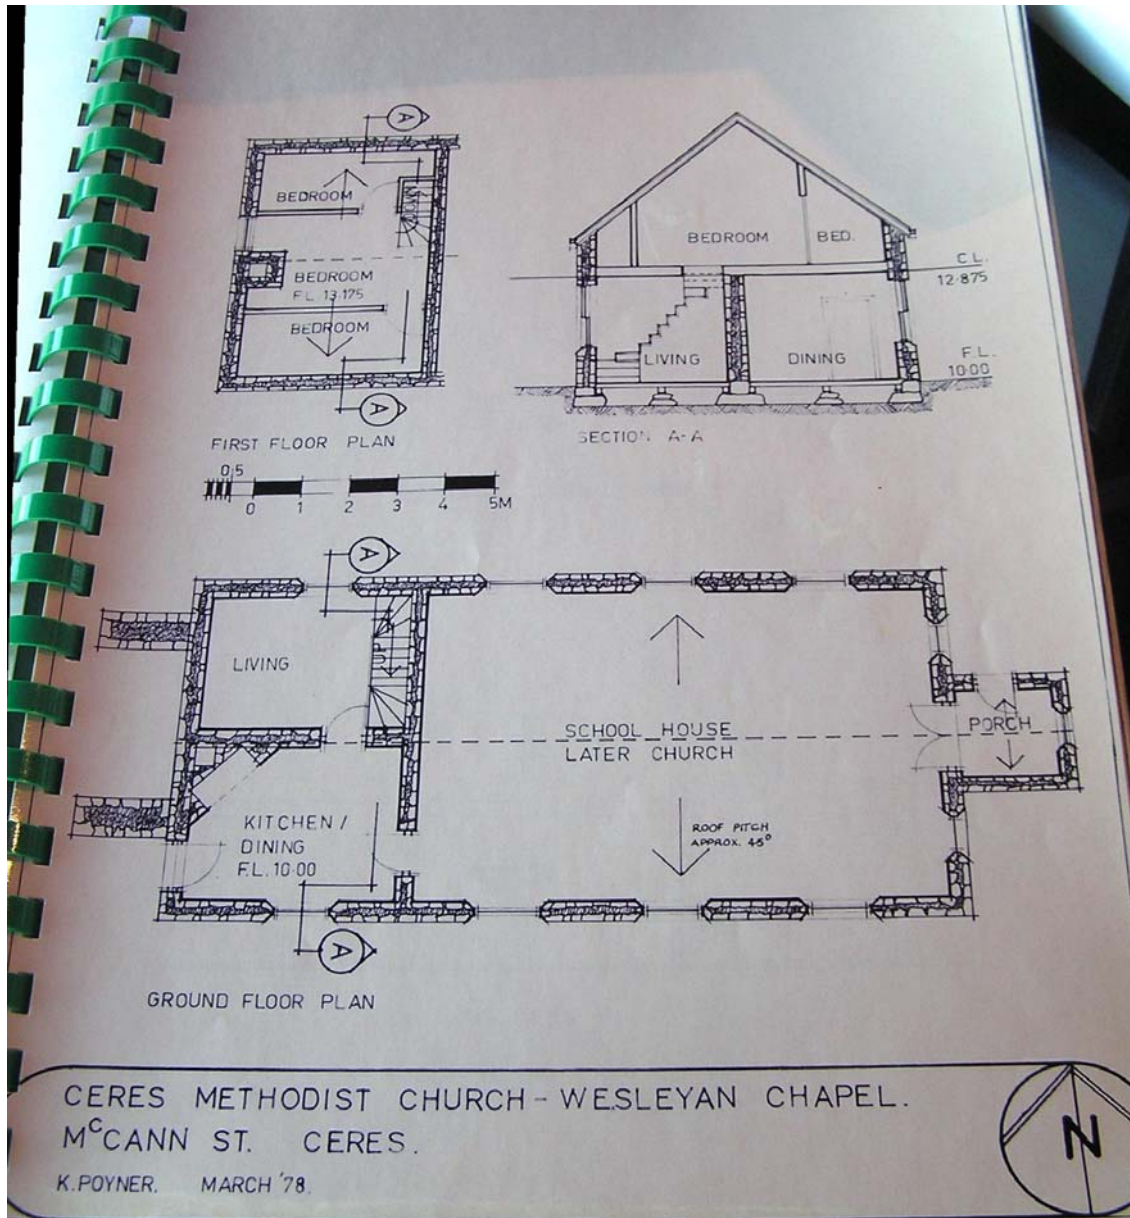 A
BEDROOM
DOWN
BEDROOM
F.L. 13·175
BEDROOM
A
FIRST FLOOR PLAN
BEDROOM
BED.
C.L.
12·875
LIVING
DINING
F.L.
10·00
SECTION A-A
0·5
0 1 2 3 4 5M
A
LIVING
UP
SCHOOL HOUSE
LATER CHURCH
PORCH
KITCHEN /
DINING
F.L. 10·00
ROOF PITCH
APPROX. 45°
A
GROUND FLOOR PLAN
CERES METHODIST CHURCH - WESLEYAN CHAPEL.
McCANN ST. CERES.
K. POYNER. MARCH '78.
N